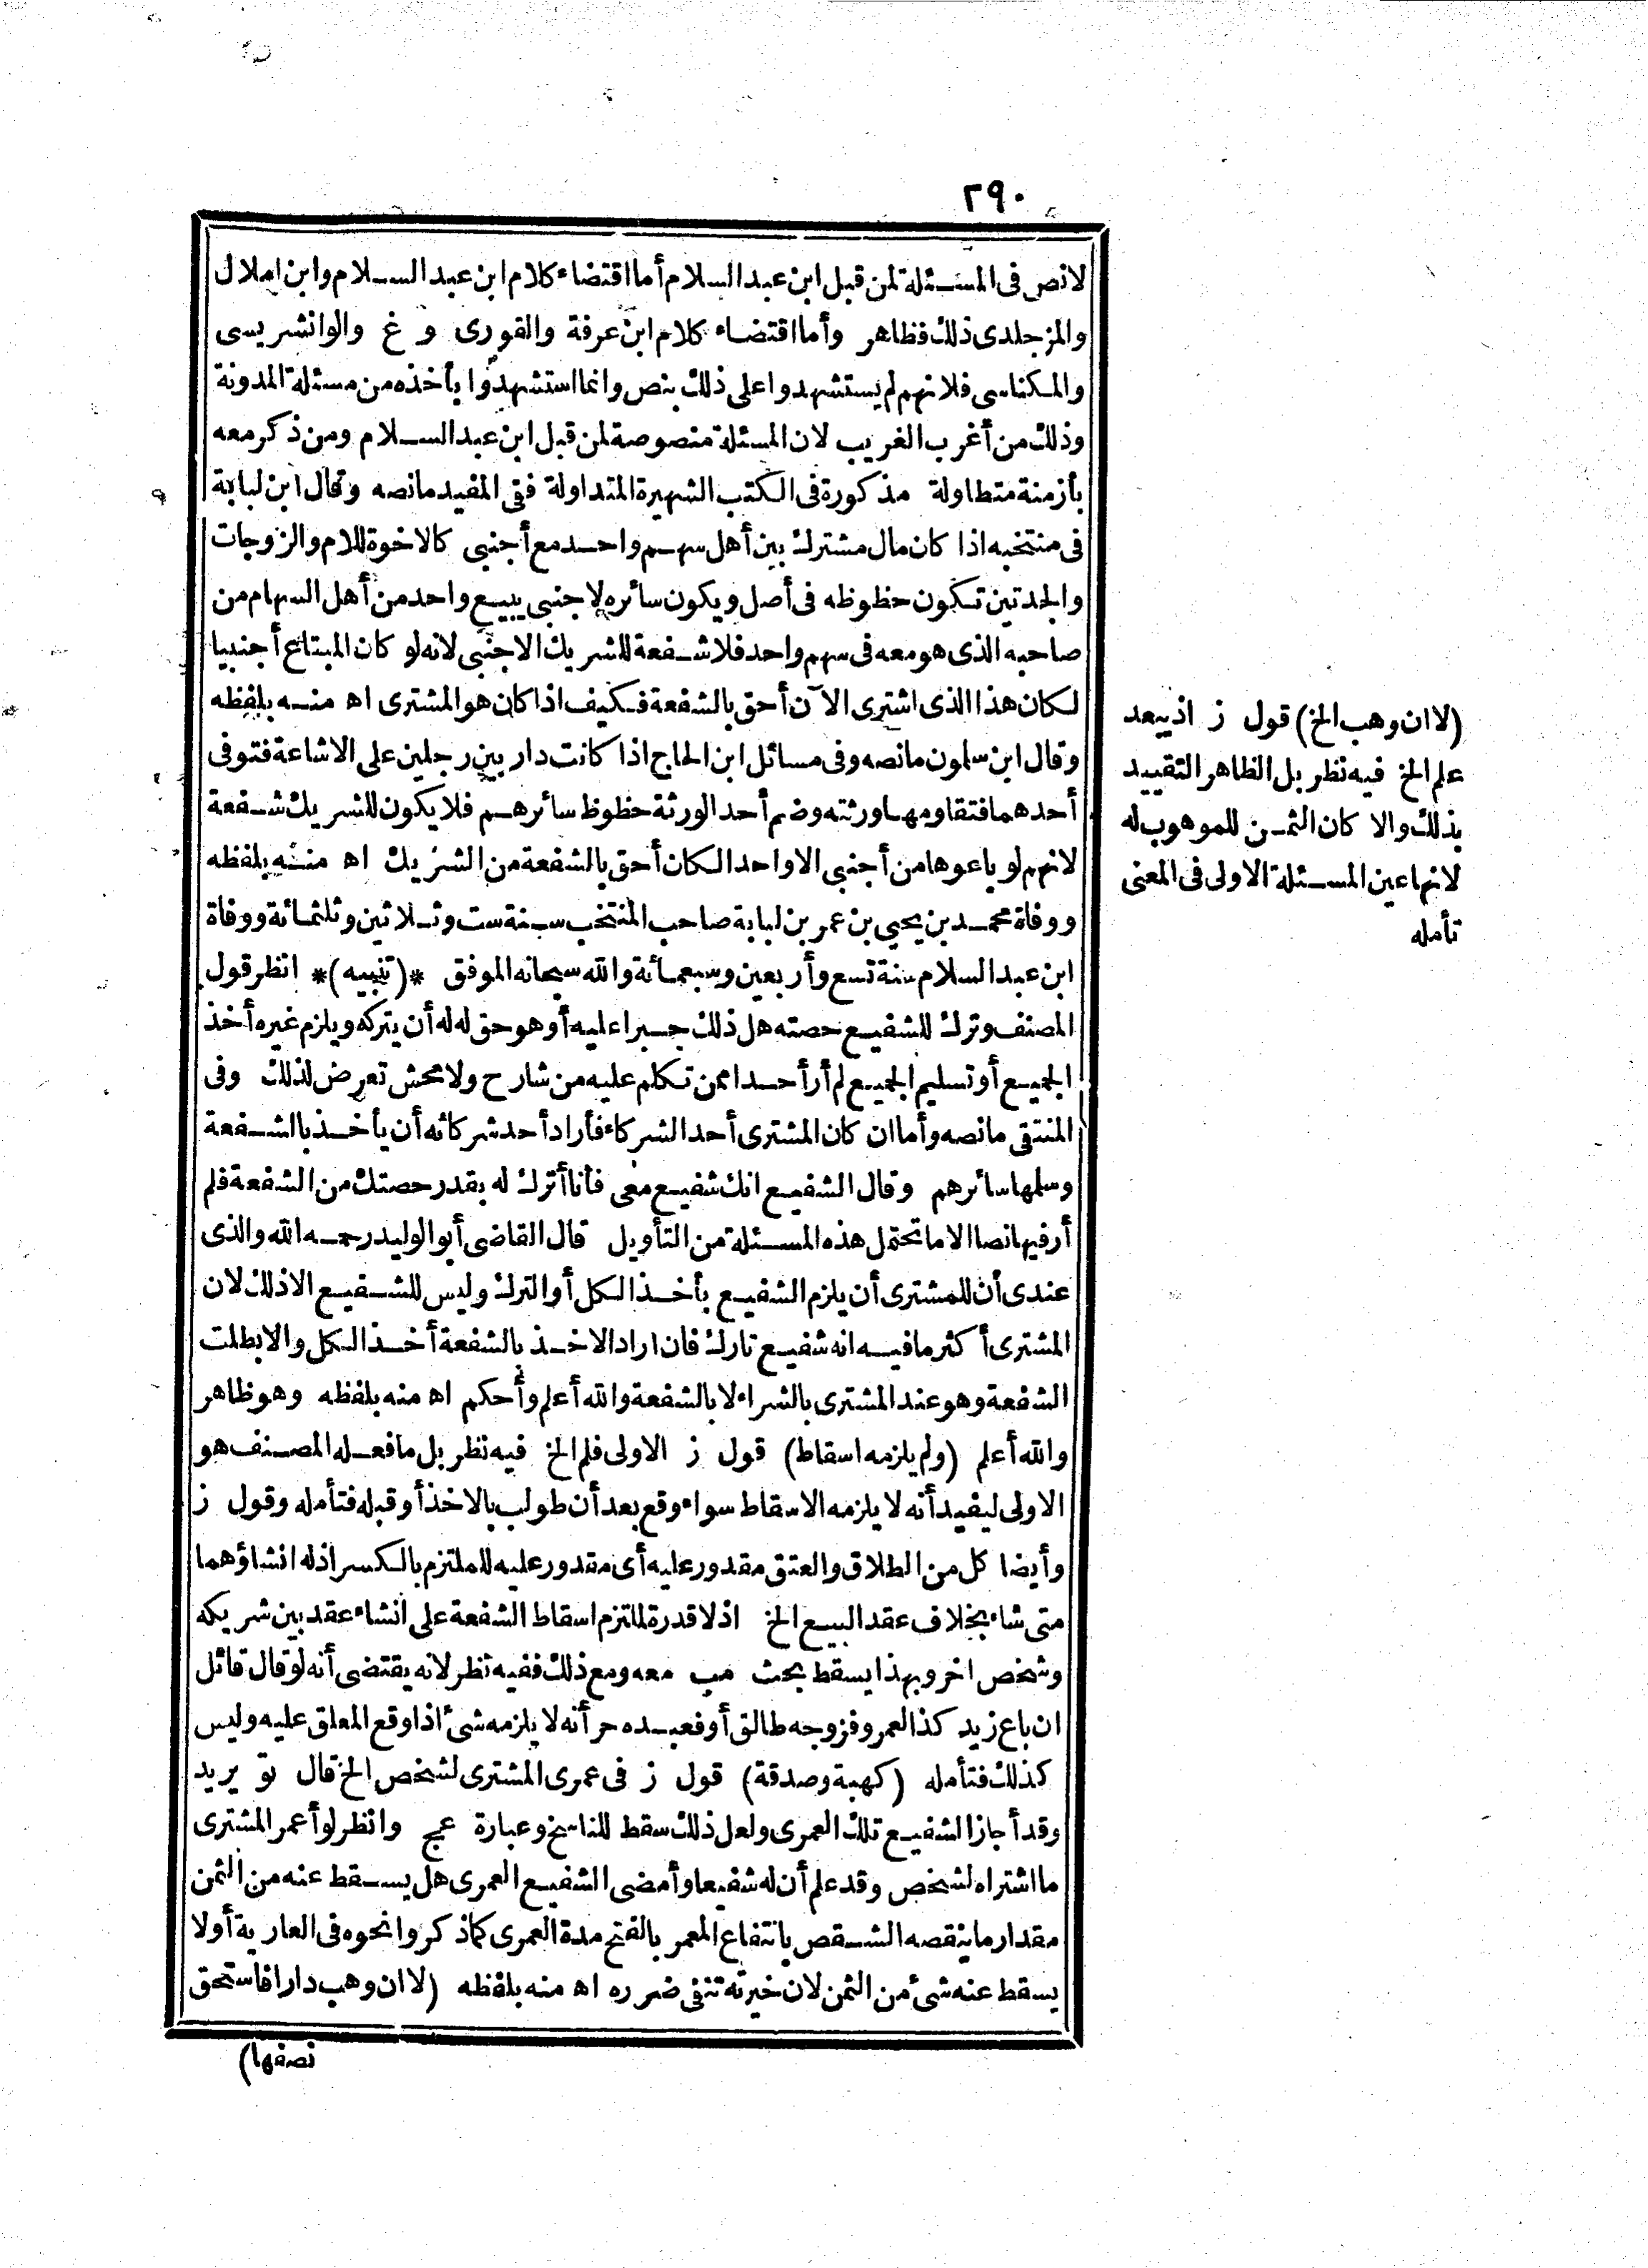 ٢٩٠
لا نص فى المسئلة لمن قبل ابن عبد السلام أما اقتضاء كلام ابن عبد السلام وابن املال
والمزجلدى ذلك فظاهر وأما اقتضاء كلام ابن عرفة والقورى و غ والوانشريسى
والمكناسى فلانهم لم يستشهدوا على ذلك بنص وانما استشهدوا بأخذه من مسئلة المدونة
وذلك من أغرب الغريب لان المسئلة منصوصة لمن قبل ابن عبد السلام ومن ذكر معه
بأزمنة متطاولة مذكورة فى الكتب الشهيرة المتداولة ففى المفيد مانصه وقال ابن لبابة
فى منتخبه اذا كان مال مشترك بين أهل سهم واحد مع أجنبى كالاخوة للام والزوجات
والجدتين تكون حظوظه فى أصل ويكون سائره لاجنبى يبيع واحد من أهل السهام من
صاحبه الذى هو معه فى سهم واحد فلا شفعة للشريك الاجنبى لانه لو كان المبتاع أجنبيا
لكان هذا الذى اشترى الآن أحق بالشفعة فكيف اذا كان هو المشترى اه منه بلفظه
وقال ابن سلمون مانصه وفى مسائل ابن الحاج اذا كانت دار بين رجلين على الاشاعة فتوفى
أحدهما فتقاومها ورثته وضم أحد الورثة حظوظ سائرهم فلا يكون للشريك شفعة
لانهم لو باعوها من أجنبى الا واحدا لكان أحق بالشفعة من الشريك اه منه بلفظه
ووفاة محمد بن يحيى بن عمر بن لبابة صاحب المنتخب سنة ست وثلاثين وثلثمائة ووفاة
ابن عبد السلام سنة تسع وأربعين وسبعمائة والله سبحانه الموفق *(تنبيه)* انظر قول
المصنف وترك للشفيع حصته هل ذلك جبرا عليه أو هو حق له له أن يتركه ويلزم غيره أخذ
الجميع أو تسليم الجميع لم أر أحدا ممن تكلم عليه من شارح ولا محش تعرض لذلك وفى
المنتقى مانصه وأما ان كان المشترى أحد الشركاء فأراد أحد شركائه أن يأخذ بالشفعة
وسلمها سائرهم وقال الشفيع انك شفيع معى فأنا أترك له بقدر حصتك من الشفعة فلم
أر فيها نصا الا ما تحتمل هذه المسئلة من التأويل قال القاضى أبو الوليد رحمه الله والذى
عندى أن للمشترى أن يلزم الشفيع بأخذ الكل أو الترك وليس للشفيع الا ذلك لان
المشترى أكثر مافيه انه شفيع تارك فان اراد الاخذ بالشفعة أخذ الكل والا بطلت
الشفعة وهو عند المشترى بالشراء لا بالشفعة والله أعلم وأحكم اه منه بلفظه وهو ظاهر
والله أعلم (ولم يلزمه اسقاط) قول ز الاولى فلم الخ فيه نظر بل مافعله المصنف هو
الاولى ليفيد أنه لا يلزمه الاسقاط سواء وقع بعد أن طولب بالاخذ أو قبله فتأمله وقول ز
وأيضا كل من الطلاق والعتق مقدور عليه أى مقدور عليه للملتزم بالكسر اذ له انشاؤهما
متى شاء بخلاف عقد البيع الخ اذ لا قدرة لملتزم اسقاط الشفعة على انشاء عقد بين شريكه
وشخص اخر وبهذا يسقط بحث مب معه ومع ذلك ففيه نظر لانه يقتضى أنه لو قال قائل
ان باع زيد كذا لعمرو فزوجه طالق أو فعبده حر أنه لا يلزمه شئ اذا وقع المعلق عليه وليس
كذلك فتأمله (كهبة وصدقة) قول ز فى عمرى المشترى لشخص الخ قال تو يريد
وقد أجاز الشفيع تلك العمرى ولعل ذلك سقط للناسخ وعبارة عج وانظر لو أعمر المشترى
ما اشتراه لشخص وقد علم أن له شفيعا وأمضى الشفيع العمرى هل يسقط عنه من الثمن
مقدار ما ينقصه الشقص بانتفاع المعمر بالفتح مدة العمرى كما ذكروا نحوه فى العارية أولا
يسقط عنه شئ من الثمن لان خيرته تنفى ضرره اه منه بلفظه (لا ان وهب دارا فاستحق
نصفها)
(لا ان وهب الخ) قول ز اذ يبعد
علم الخ فيه نظر بل الظاهر التقييد
بذلك والا كان الثمن للموهوب له
لانها عين المسئلة الاولى فى المعنى
تأمله